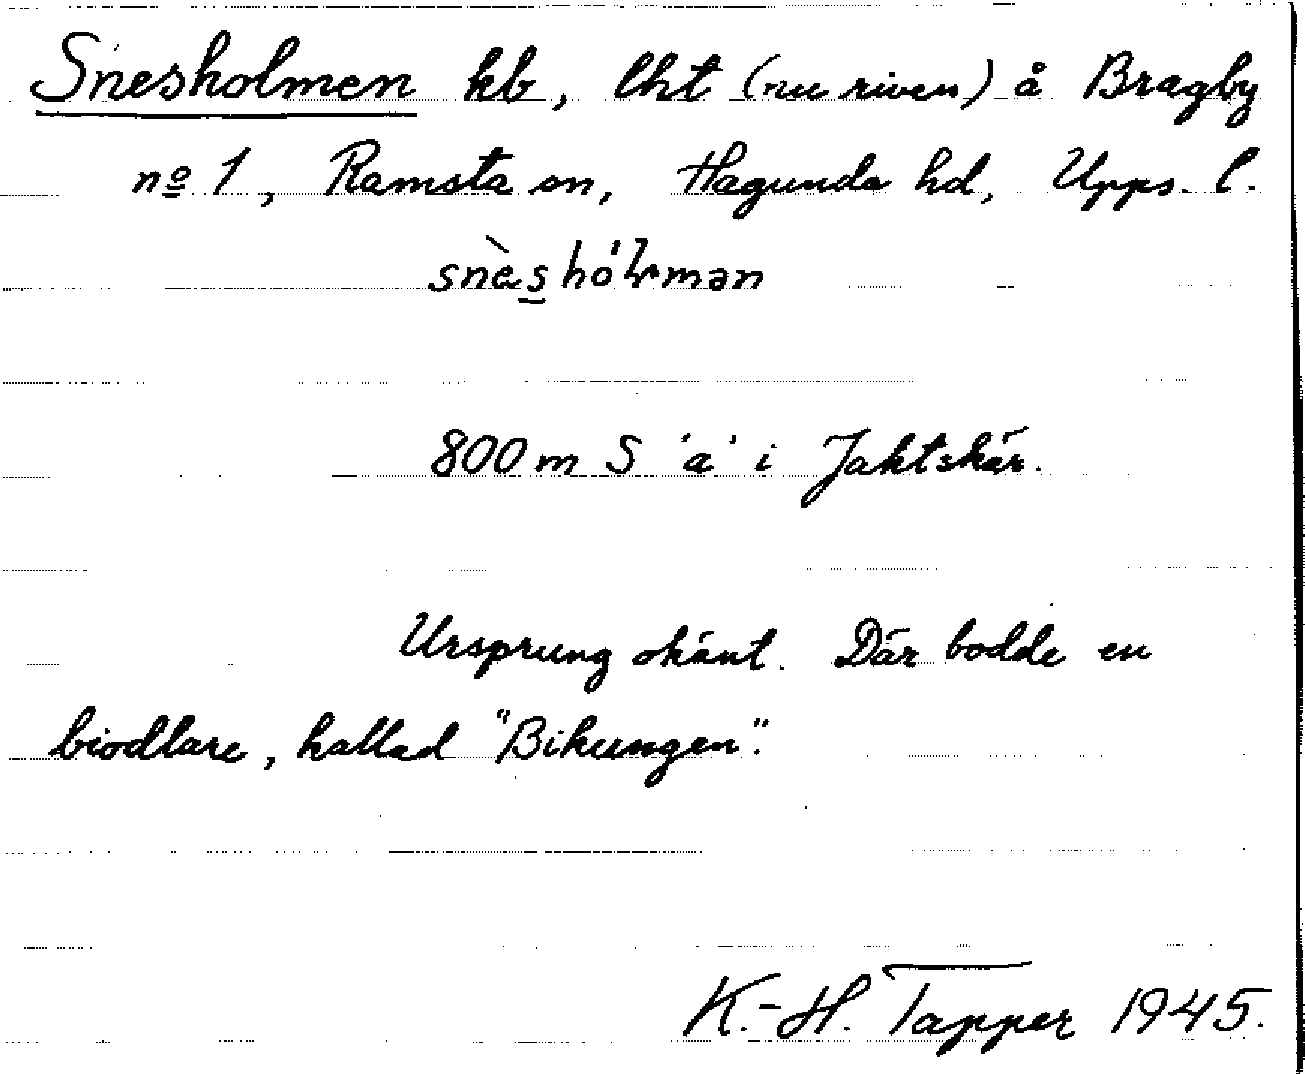 Snesholmen kb, lht (nu riven) å Bragby
nº 1, Ramsta sn, Hagunda hd, Upps. l.
800 m S 'a' i Jaktskär.
Ursprung okänt. Där bodde en
biodlare, kallad "Bikungen".
K.-H. Tapper 1945.